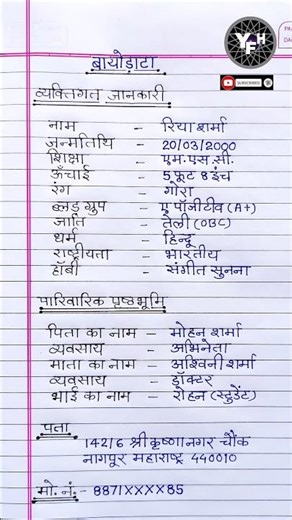 YFH
PA
DA
SUBSCRIBE
बायोडाटा
व्यक्तिगत जानकारी
नाम - रिया शर्मा
जन्मतिथि - 20/03/2000
शिक्षा - एम.एस.सी.
ऊँचाई - 5 फूट 8 इंच
रंग - गोरा
ब्लड ग्रुप - ए पॉजीटीव (A+)
जाति - तेली (OBC)
धर्म - हिन्दू
राष्ट्रीयता - भारतीय
हॉबी - संगीत सुनना
पारिवारिक पृष्ठभूमि
पिता का नाम - मोहन शर्मा
व्यवसाय - अभिनेता
माता का नाम - अश्विनी शर्मा
व्यवसाय - डॉक्टर
भाई का नाम - रोहन (स्टुडेंट)
पता
142/6 श्री कृष्णानगर चौक
नागपूर महाराष्ट्र 440010
मो. नं. - 8871XXXX85